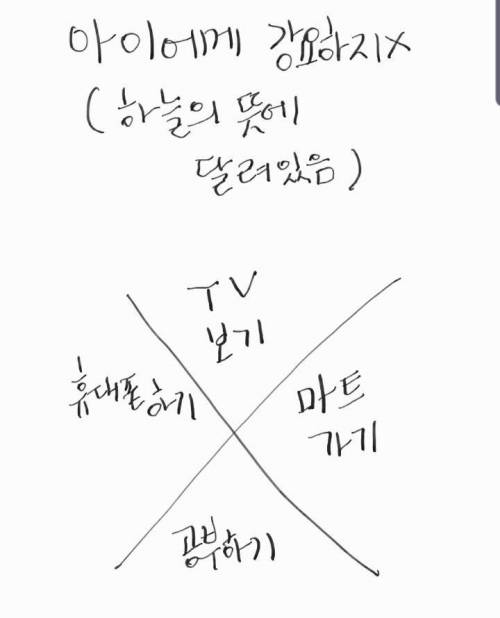 아이에게 강요하지X
(하늘의 뜻에
달려있음)
TV
보기
휴대폰하기
마트
가기
공부하기